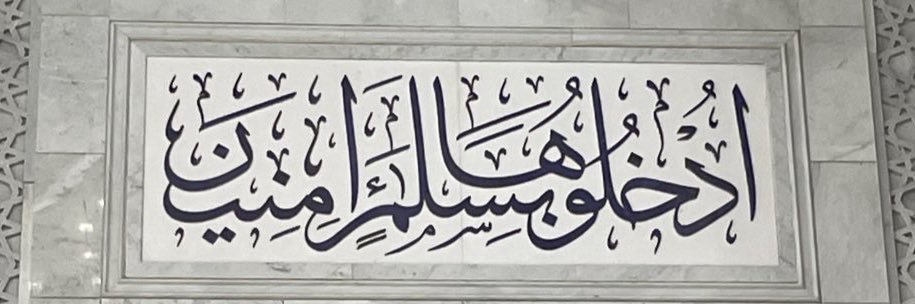 ادْخُلُوهَا بِسَلَٰمٍ ءَامِنِينَ